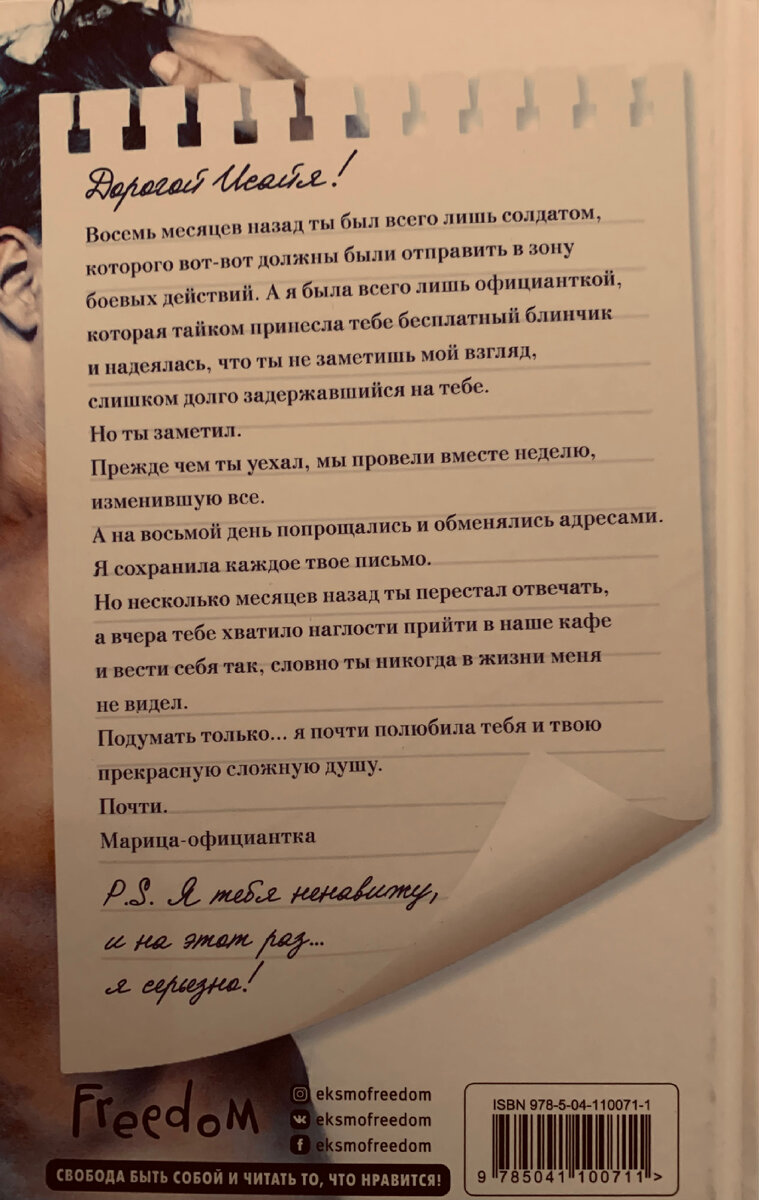 Дорогой Исайя!
Восемь месяцев назад ты был всего лишь солдатом,
которого вот-вот должны были отправить в зону
боевых действий. А я была всего лишь официанткой,
которая тайком принесла тебе бесплатный блинчик
и надеялась, что ты не заметишь мой взгляд,
слишком долго задержавшийся на тебе.
Но ты заметил.
Прежде чем ты уехал, мы провели вместе неделю,
изменившую все.
А на восьмой день попрощались и обменялись адресами.
Я сохранила каждое твое письмо.
Но несколько месяцев назад ты перестал отвечать,
а вчера тебе хватило наглости прийти в наше кафе
и вести себя так, словно ты никогда в жизни меня
не видел.
Подумать только... я почти полюбила тебя и твою
прекрасную сложную душу.
Почти.
Марица-официантка
P.S. Я тебя ненавижу,
и на этот раз...
я серьезно!
Freedom
eksmofreedom
eksmofreedom
eksmofreedom
СВОБОДА БЫТЬ СОБОЙ И ЧИТАТЬ ТО, ЧТО НРАВИТСЯ!
ISBN 978-5-04-110071-1
9 785041 100711 >